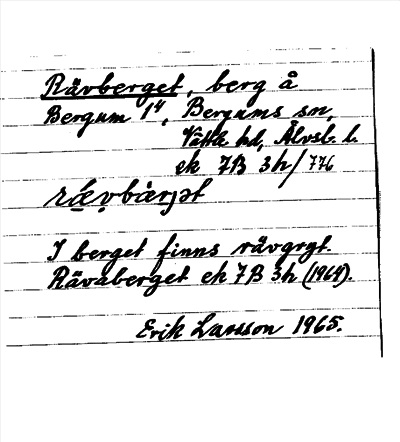 Rävberget, berg å
Bergum 1⁴, Bergums sn,
Vättle hd, Älvsb. l.
ek 7B 3h/776
I berget finns rävgryt.
Rävaberget ek 7B 3h (1964).
Erik Larsson 1965.